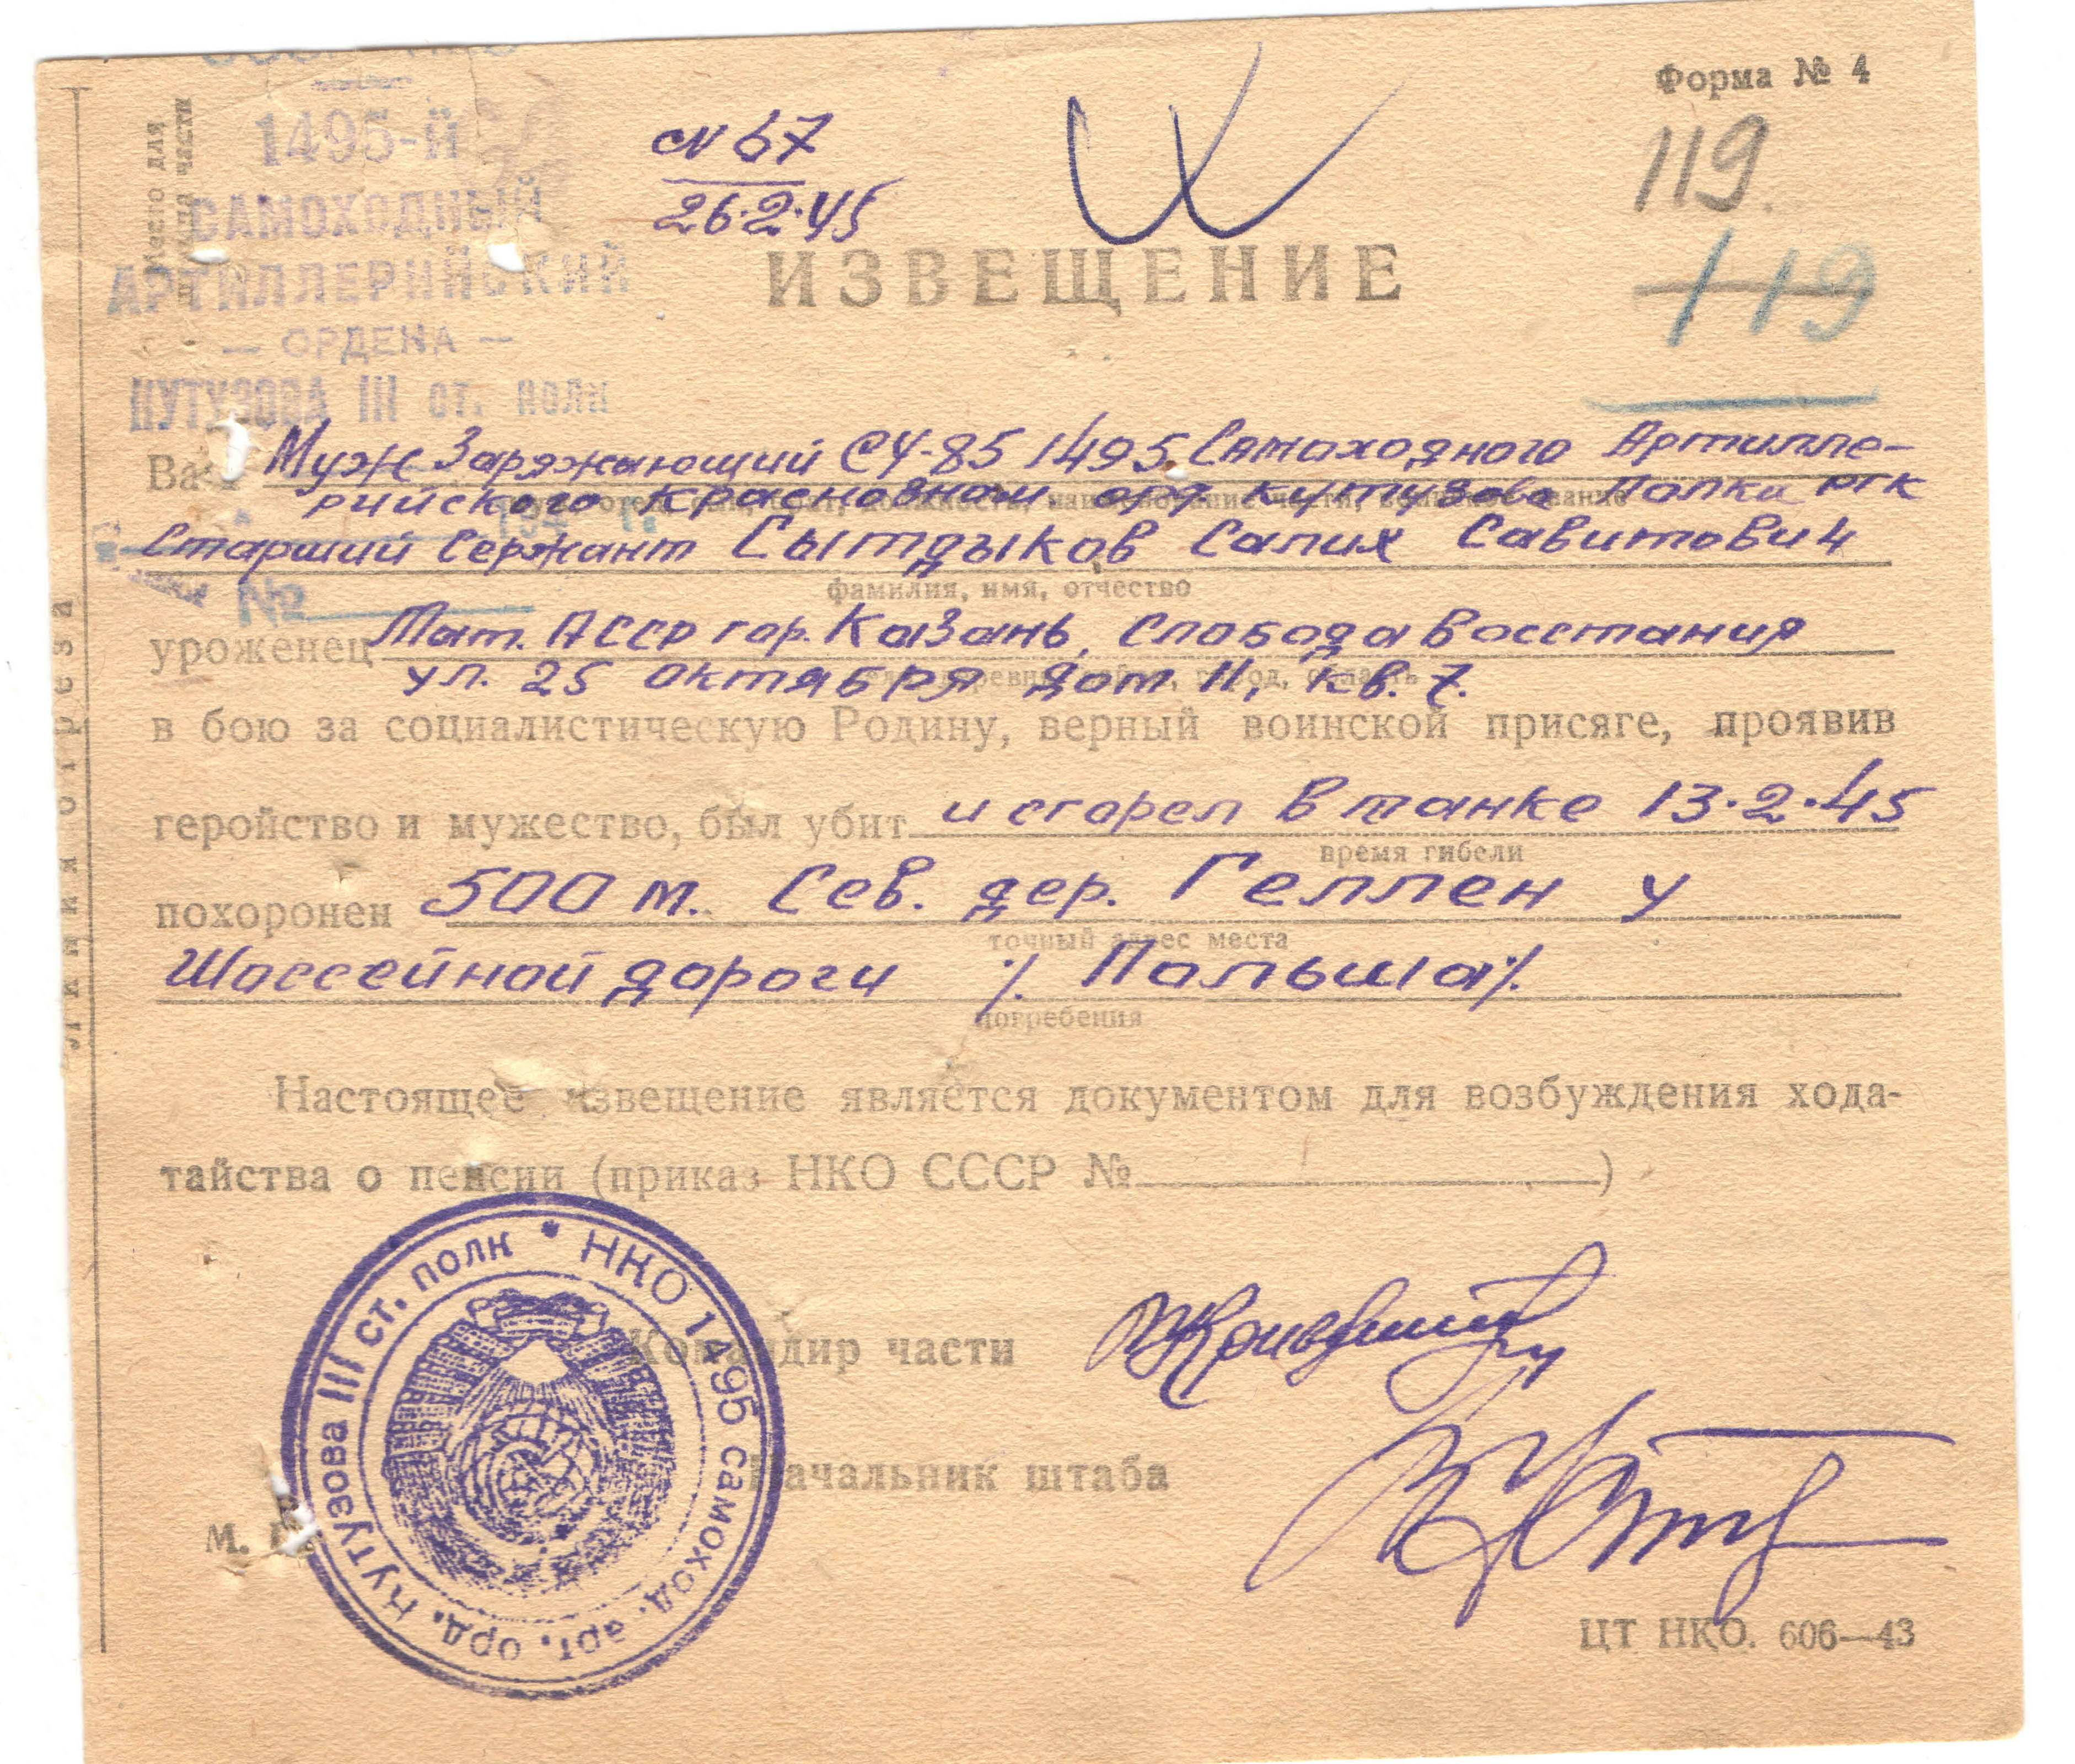 Форма № 4
1495-й
САМОХОДНЫЙ
АРТИЛЛЕРИЙСКИЙ
— ОРДЕНА —
КУТУЗОВА III ст. полк
№ 67
26·2·45
119
119
ИЗВЕЩЕНИЕ
Ваш Муж Заряжающий СУ-85 1495 Самоходного Артилле-
рийского Краснознам орд Кутузова Полка РГК
Старший Сержант Сытдыков Салих Савитович
фамилия, имя, отчество
уроженец Тат. АССР гор. Казань, Слобода Восстания
ул. 25 октября дом 11, кв. 7.
в бою за социалистическую Родину, верный воинской присяге, проявив
геройство и мужество, был убит и сгорел в танке 13·2·45
время гибели
похоронен 500 м. Сев. дер. Геллен у
точный адрес места
Шоссейной дороги ·/. Польша·/.
погребения
Настоящее извещение является документом для возбуждения хода-
тайства о пенсии (приказ НКО СССР № )
Командир части
Начальник штаба
М. П.
НКО 1495 самоход. арт. орд. Кутузова III ст. полк
ЦТ НКО. 606—43
Линия отреза